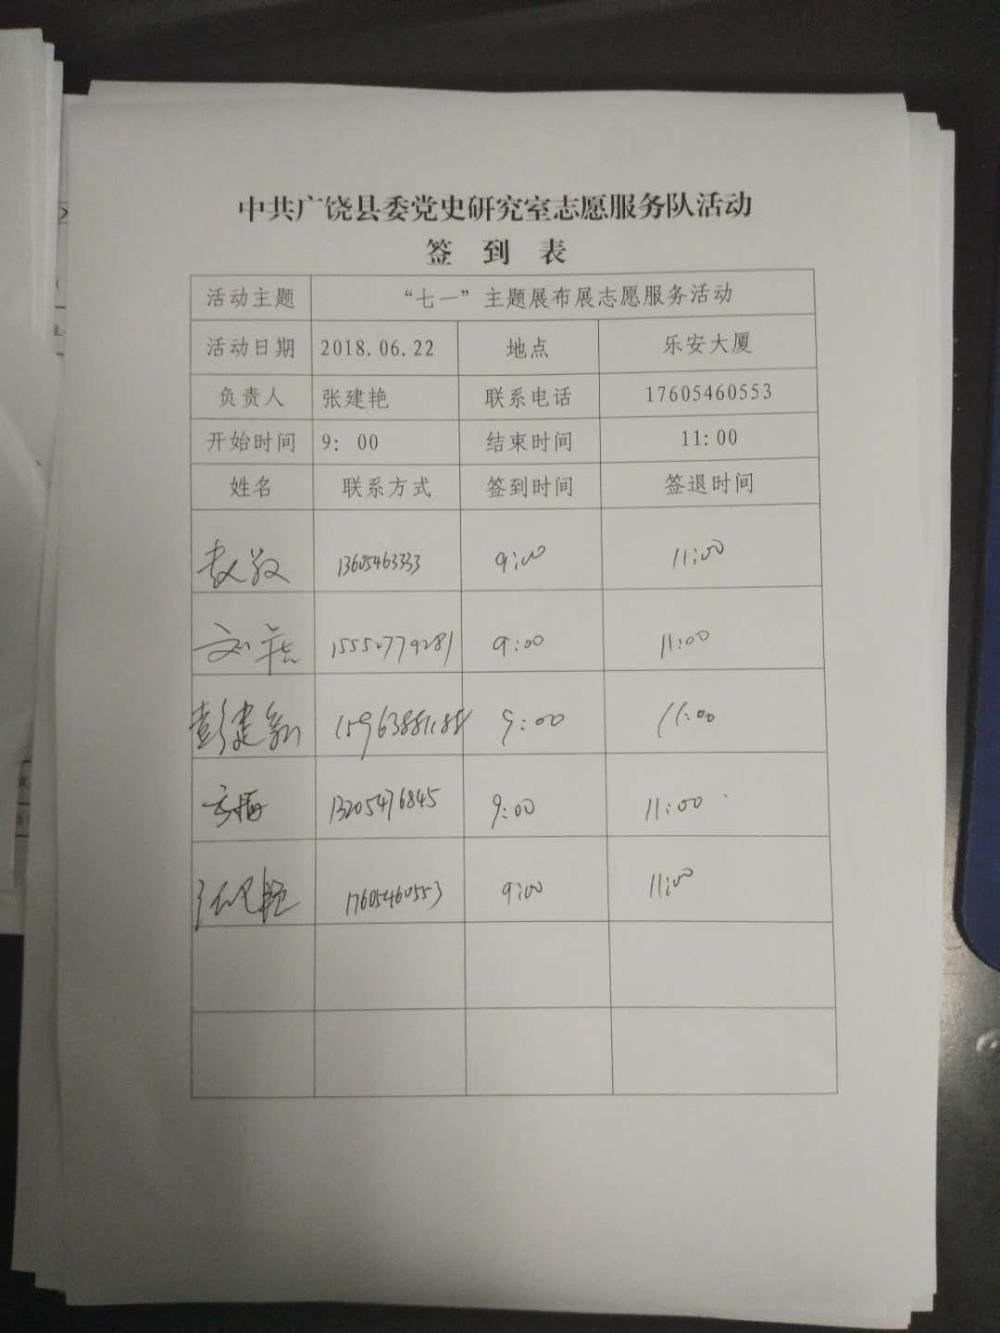 中共广饶县委党史研究室志愿服务队活动
签 到 表
活动主题 “七一”主题展布展志愿服务活动
活动日期 2018.06.22 地点 乐安大厦
负责人 张建艳 联系电话 17605460553
开始时间 9: 00 结束时间 11:00
姓名 联系方式 签到时间 签退时间
赵敬 13605463333 9:00 11:00
刘 15552779281 9:00 11:00
彭建新 15963881188 9:00 11:00
13205476845 9:00 11:00
张建艳 17605460553 9:00 11:00